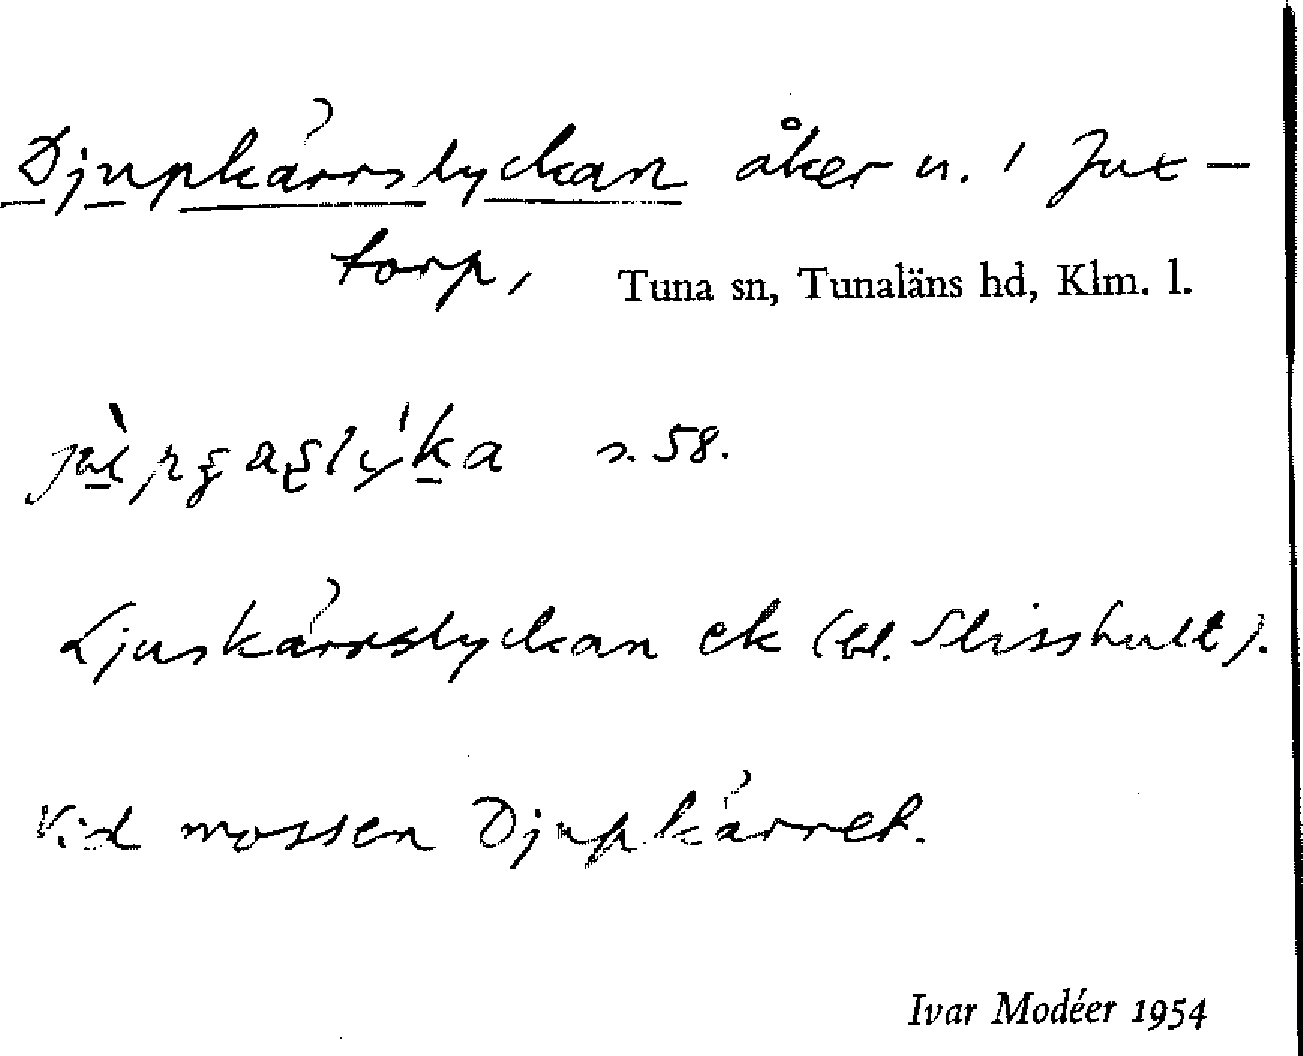 Djupkärrslyckan åker n. i Jux-
torp,
Tuna sn, Tunaläns hd, Klm. l.
s. 58.
Ljuskärrslyckan ek (bl. Slisshult).
Vid mossen Djupkärret.
Ivar Modéer 1954